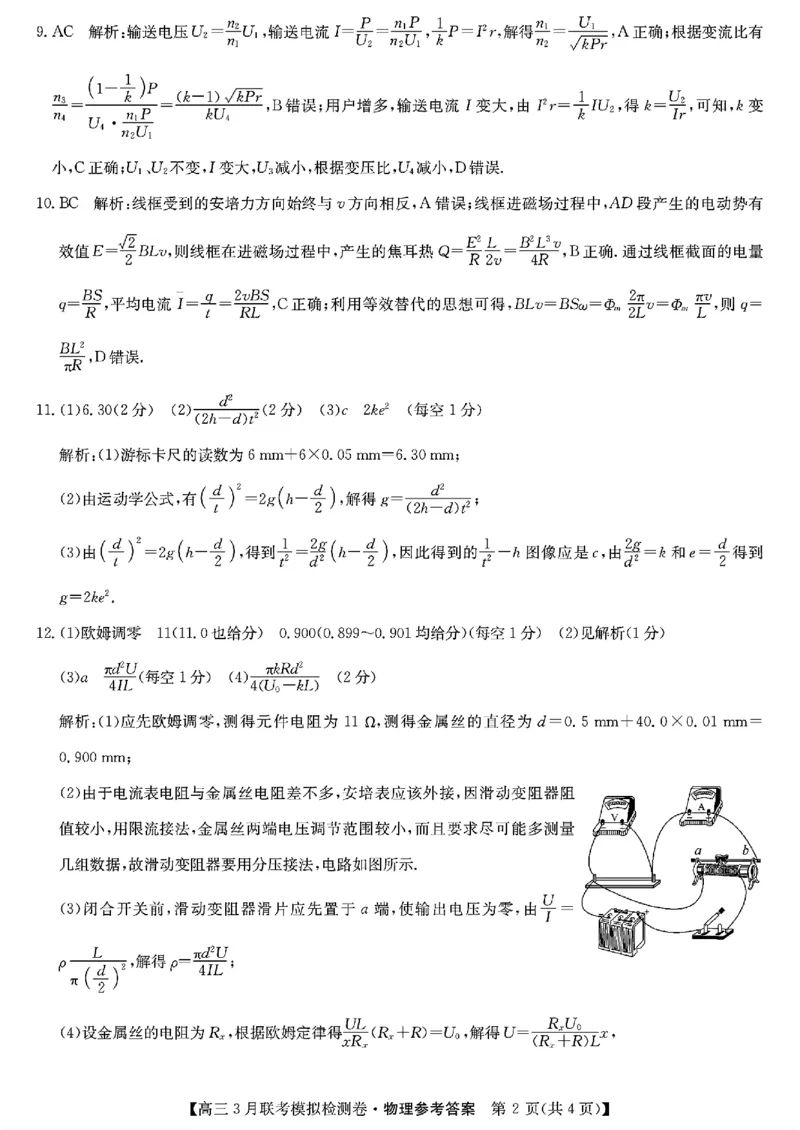 9. AC 解析:输送电压U₂=\frac{n₂}{n₁}U₁,输送电流I=\frac{P}{U₂}=\frac{n₁P}{n₂U₁},\frac{1}{k}P=I²r,解得\frac{n₁}{n₂}=\frac{U₁}{\sqrt{kPr}},A正确;根据变流比有
\frac{n₃}{n₄}=\frac{(1-\frac{1}{k})P}{U₄·\frac{n₁P}{n₂U₁}}=\frac{(k-1)\sqrt{kPr}}{kU₄},B错误;用户增多,输送电流I变大,由I²r=\frac{1}{k}IU₂,得k=\frac{U₂}{Ir},可知,k变
小,C正确;U₁、U₂不变,I变大,U₃减小,根据变压比,U₄减小,D错误.
10. BC 解析:线框受到的安培力方向始终与v方向相反,A错误;线框进磁场过程中,AD段产生的电动势有
效值E=\frac{\sqrt{2}}{2}BLv,则线框在进磁场过程中,产生的焦耳热Q=\frac{E²}{R}\frac{L}{2v}=\frac{B²L³v}{4R},B正确.通过线框截面的电量
q=\frac{BS}{R},平均电流\overline{I}=\frac{q}{t}=\frac{2vBS}{RL},C正确;利用等效替代的思想可得,BLv=BSω=Φₘ\frac{2π}{2L}v=Φₘ\frac{πv}{L},则q=
\frac{BL²}{πR},D错误.
11. (1)6.30(2分) (2)\frac{d²}{(2h-d)t²}(2分) (3)c 2ke² (每空1分)
解析:(1)游标卡尺的读数为6 mm+6×0.05 mm=6.30 mm;
(2)由运动学公式,有(\frac{d}{t})²=2g(h-\frac{d}{2}),解得g=\frac{d²}{(2h-d)t²};
(3)由(\frac{d}{t})²=2g(h-\frac{d}{2}),得到\frac{1}{t²}=\frac{2g}{d²}(h-\frac{d}{2}),因此得到的\frac{1}{t²}-h图像应是c,由\frac{2g}{d²}=k和e=\frac{d}{2}得到
g=2ke².
12. (1)欧姆调零 11(11.0也给分) 0.900(0.899~0.901均给分)(每空1分) (2)见解析(1分)
(3)a \frac{πd²U}{4IL}(每空1分) (4)\frac{πkRd²}{4(U₀-kL)} (2分)
解析:(1)应先欧姆调零,测得元件电阻为11 Ω,测得金属丝的直径为d=0.5 mm+40.0×0.01 mm=
0.900 mm;
(2)由于电流表电阻与金属丝电阻差不多,安培表应该外接,因滑动变阻器阻
值较小,用限流接法,金属丝两端电压调节范围较小,而且要求尽可能多测量
几组数据,故滑动变阻器要用分压接法,电路如图所示.
V
A
a
b
+
(3)闭合开关前,滑动变阻器滑片应先置于a端,使输出电压为零,由\frac{U}{I}=
ρ\frac{L}{π(\frac{d}{2})²},解得ρ=\frac{πd²U}{4IL};
(4)设金属丝的电阻为Rₓ,根据欧姆定律得\frac{UL}{xRₓ}(Rₓ+R)=U₀,解得U=\frac{RₓU₀}{(Rₓ+R)L}x,
【高三3月联考模拟检测卷·物理参考答案 第2页(共4页)】